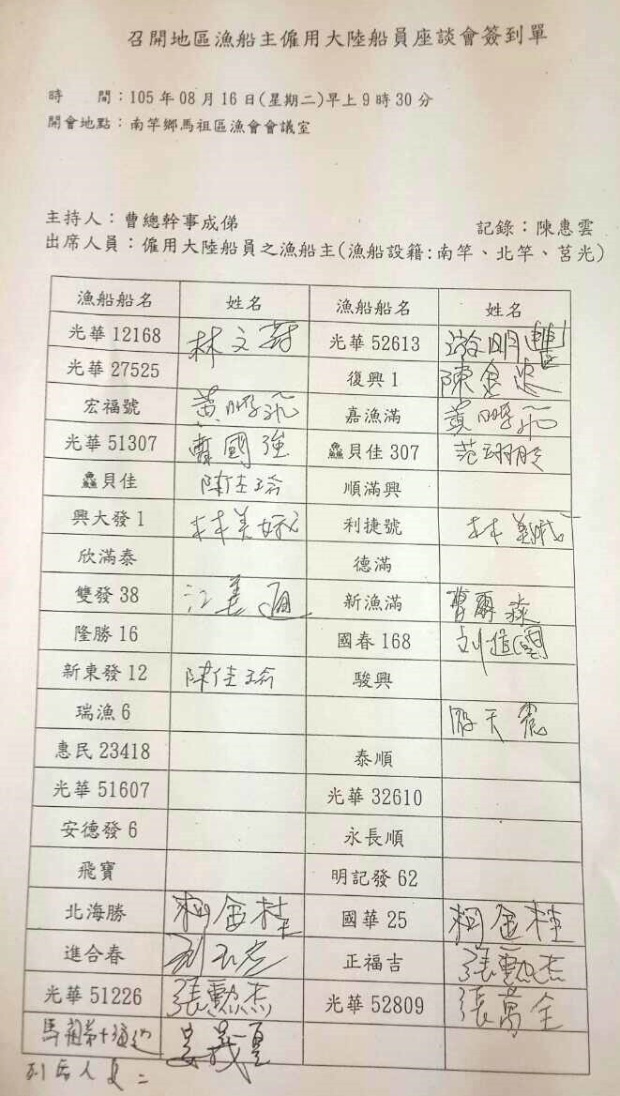 召開地區漁船主僱用大陸船員座談會簽到單
時　　間：105年08月16日(星期二)早上9時30分
開會地點：南竿鄉馬祖區漁會會議室
主持人：曹總幹事成俤　記錄：陳惠雲
出席人員：僱用大陸船員之漁船主(漁船設籍:南竿、北竿、莒光)
漁船船名　姓名　漁船船名　姓名
光華12168　林文　光華52613　游明
光華27525　復興1　陳金
宏福號　黃鵬飛　嘉漁滿　黃鵬飛
光華51307　曹國強　鱻貝佳307　范翊
鱻貝佳　陳佳瑜　順滿興
興大發1　林美　利捷號　林美
欣滿泰　德滿
雙發38　江　新漁滿　曹爾
隆勝16　國春168　刘
新東發12　陳佳瑜　駿興
瑞漁6　游天
惠民23418　泰順
光華51607　光華32610
安德發6　永長順
飛寶　明記發62
北海勝　柯金桂　國華25　柯金桂
進合春　刘　正福吉　張勳杰
光華51226　張勳杰　光華52809　張萬全
馬　義